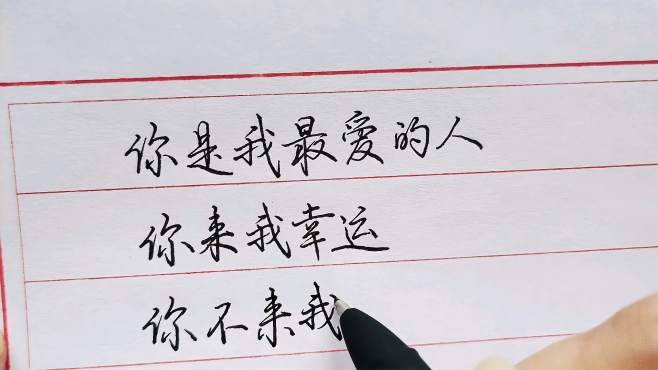 你是我最愛的人
你来我幸运
你不来我